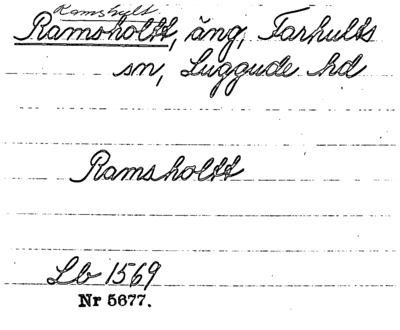 Ramshylt
Ramsholtt, äng, Farhults
sn, Luggude hd
Ramsholtt
Lb 1569
Nr 5677.